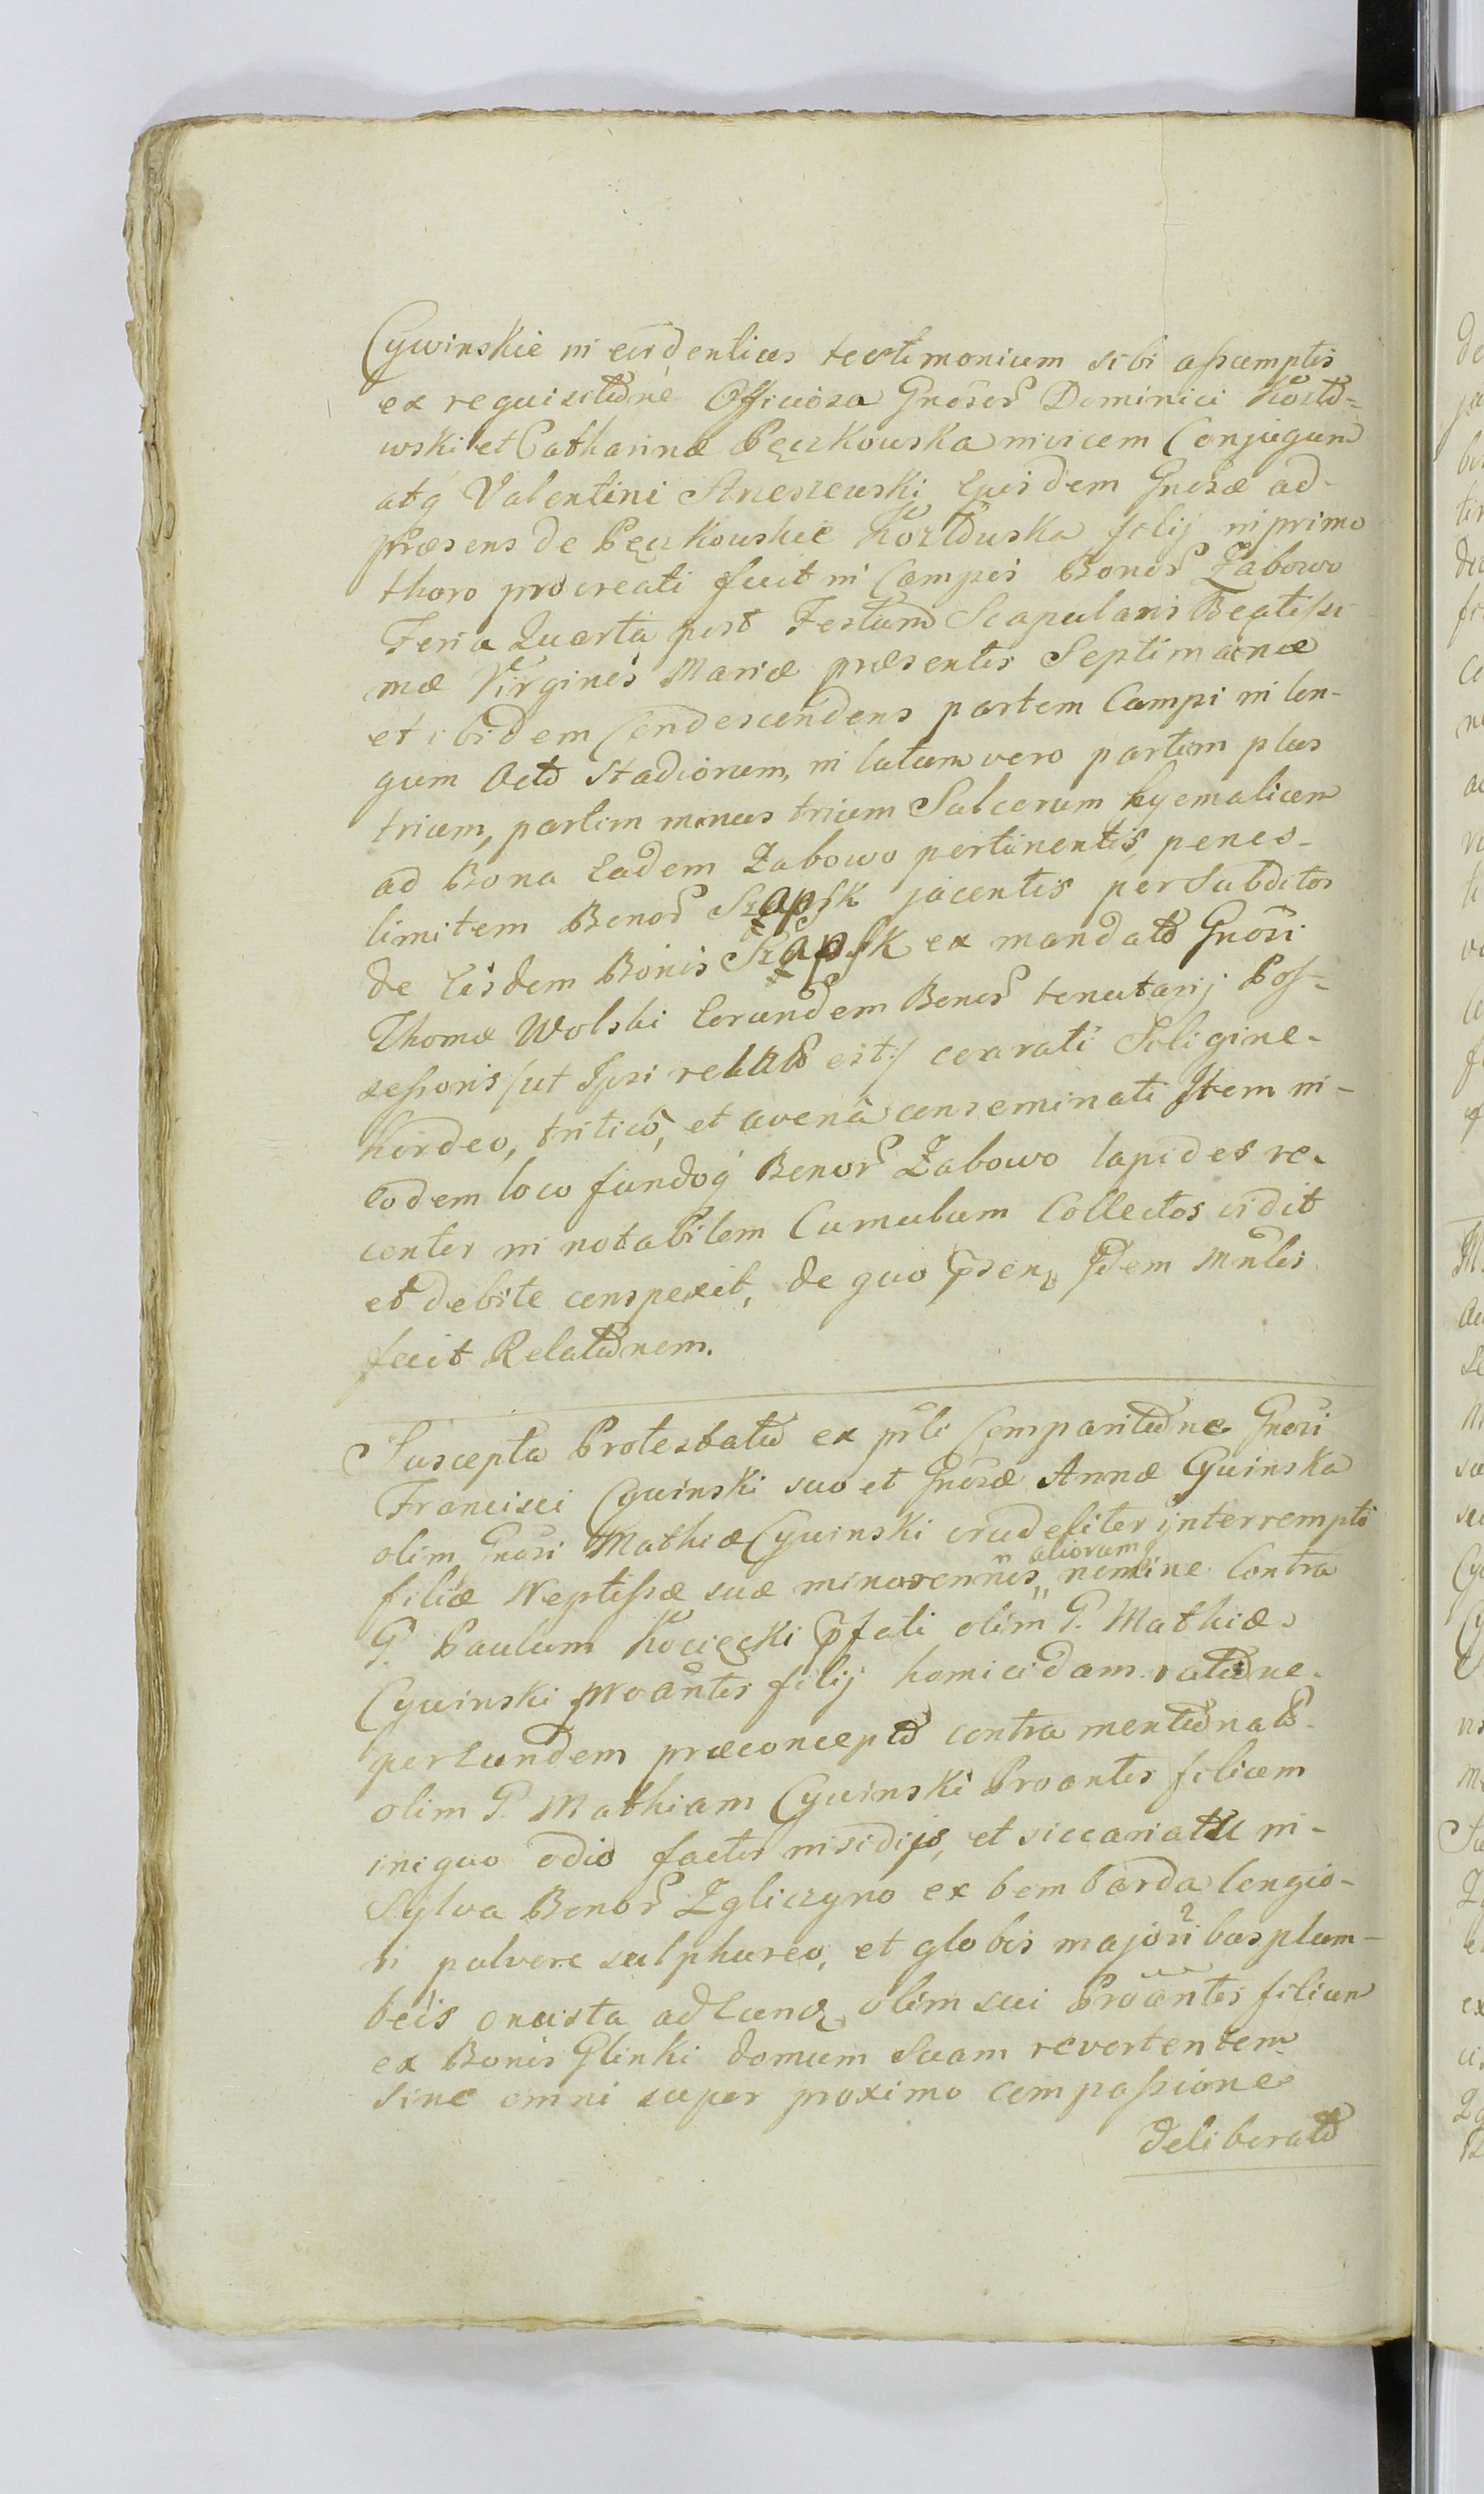 Cywinskie in evidentius testimonium sibi assumptis
ex requisitione Officiosa Gnosor Dominici Kozło-
wski et Catharinæ Pęczkowska invicem Conjugum
atq Valentini Strzeszewski Ejusdem Gnosæ ad-
præsens de Pęczkowskie Kozłowska filij in primo
thoro procreati fuit in Campis Bonor Żabowo
Feria Quarta post Festum Scapularis Beatissi-
mæ Virginis Mariæ præsentis Septimanæ
et ibidem Condescendens partem Campi in lon-
gum octo Stadiorum, in latum vero partim plus
trium, partim minus trium Sulcorum hyemalium
ad Bona Eadem Żabowo pertinentis, penes
limitem Bonor Szapsk jacentis per Subditos
de Eisdem Bonis Szapsk ex mandato Gnosi
Thomæ Wolski Eorundem Bonor tenutarij Pos-
sessoris /ut Ipsi relato est/ exarati Siligine
hordeo, tritico, et avena conseminati Item in
Eodem loco fundoq Bonor Żabowo lapides re-
center in notabilem Cumulum Collectos vidit
et debite conspexit, de quo psen Idem Mnlis
fecit Relationem.
Suscepta Protestatio ex prli Comparitione Gnosi
Francisci Cywinski suo et Gnosæ Annæ Cywinska
olim Gnosi Mathiæ Cywinski crudeliter interrempti
filiæ Neptissæ suæ minorennis aliorumq nomine Contra
G. Paulum Kocięcki pfati olim G. Mathiæ
Cywinski Proantis filij homicidam ratione
per Eundem præconcepto contra mentionato
olim G. Mathiam Cywinski Proantis filium
iniquo odio factis insidijs, et siccariatu in
Sylva Bonor Zgliczyno ex bombarda longio-
ri pulvere sulphureo, et globis majoribus plum-
beis onusta ad Eund olim sui Proantis filium
ex Bonis Glinki domum Suam revertentem
Sine omni super proximo compassione
deliberato